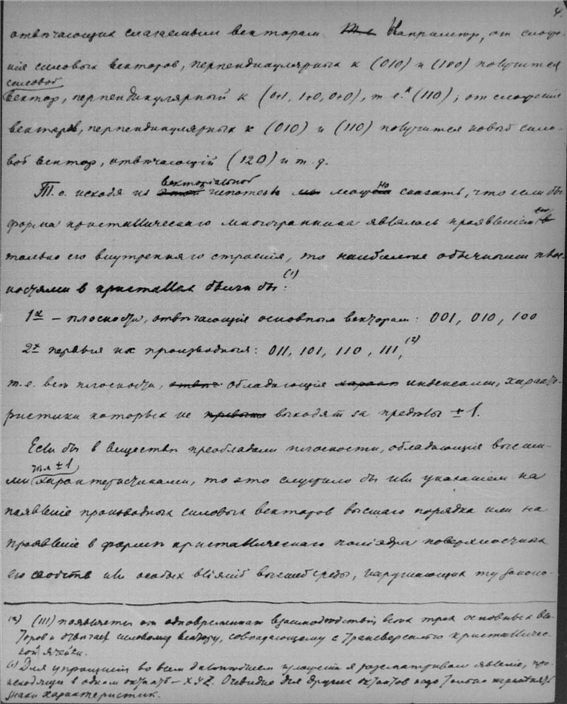 4.
отвѣчающих слагаемым векторам. Например, от сложе-
нія силовых векторов, перпендикулярных к (010) и (100) получится
силовой
вектор, перпендикулярный к (0+1, 1+0, 0+0), т.е. к (110); от сложенія
векторов, перпендикулярных к (010) и (110) получится новый сило-
вой вектор, отвѣчающій (120) и т.д.
векторіальной
Т.о. исходя из гипотезы можно сказать, что если бы
форма кристаллическаго многогранника являлась проявленіем
только его внутренняго строенія, то наиболѣе обычными плос-
костями в кристаллах были бы: (1)
1х – плоскости, отвѣчающія основным векторам: 001, 010, 100
2х первыя их производныя: 011, 101, 110, 111, (2)
т.е. всѣ плоскости, обладающія индексами, характе-
ристики которых не выходят за предѣлы ± 1.
Если бы в веществѣ преобладали плоскости, обладающія высши-
ми ± 1 характеристиками, то это служило бы или указаніем на
появленіе производных силовых векторов высшаго порядка или на
проявленіе в формѣ кристаллическаго поліэдра поверхностных
его свойств или особых вліяній внѣшней среды, нарушающих эту законо-
(2) (111) появляется от одновременнаго взаимодѣйствія всѣх трех основных век-
торов и отвѣчает силовому вектору, совпадающему с кристалличес-
кой ячейки.
(1) Для упрощенія во всем дальнѣйшем изложеніи я разсматриваю явленіе, про-
исходящія в одном октантѣ – XYZ. Очевидно для других октантов надо только перемѣнять
знаки характеристик.